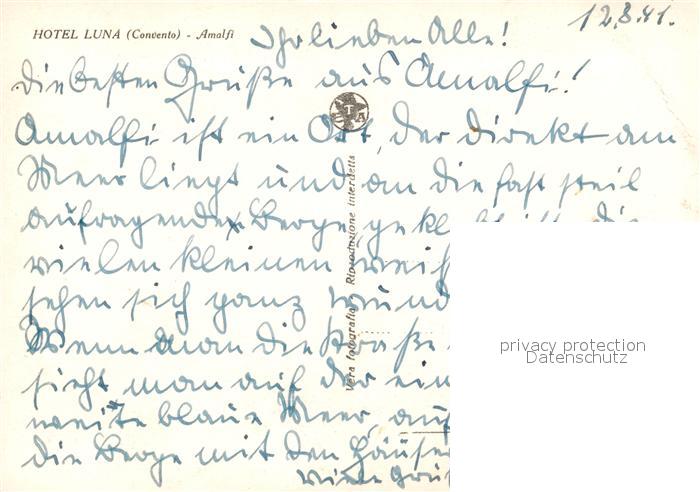 HOTEL LUNA (Convento) - Amalfi
12.3.41.
Ihr lieben Alle!
die besten Grüße aus Amalfi!
Amalfi ist ein Ort, der direkt am
Meer liegt und an die fast steil
aufragenden Berge gekl
vielen kleinen weiß
sehen sich ganz wund
Wenn man die Straße
sieht man auf der ein
weite blaue Meer, auf
die Berge mit den Häuser
Viele Grüß
Vera fotografia - Riproduzione interdetta
privacy protection
Datenschutz